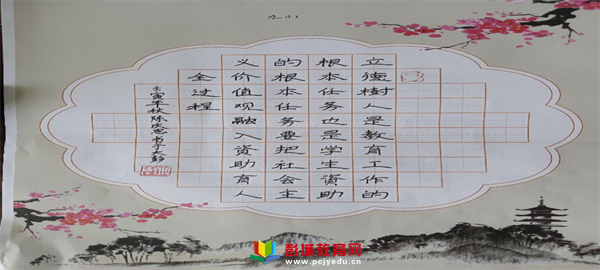 立德樹人是教育工作的
根本任务也是学生資助
的根本任务要把社会主
义价值观融入資助育人
全过程
壬寅年秋陈庆恩书于彭
教育网
www.pcjyedu.cn